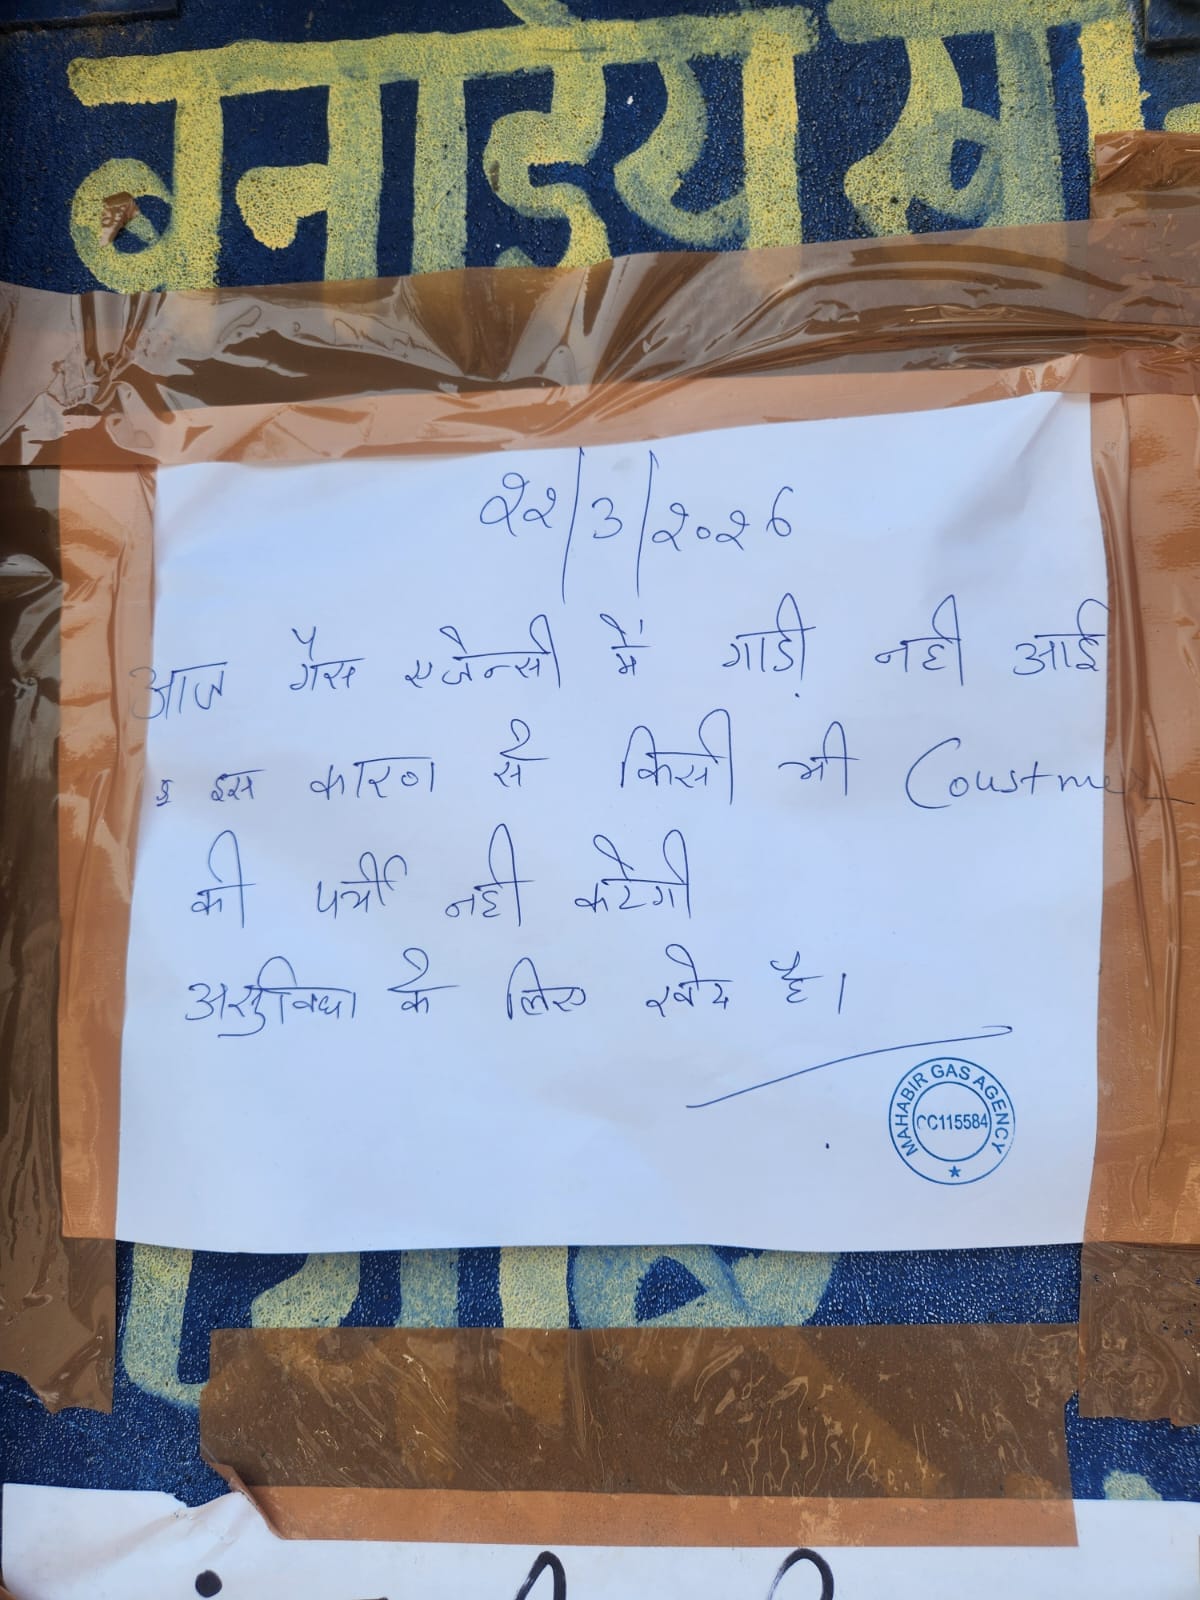 बनाईये खा
22/3/2026
आज गैस एजेन्सी में गाड़ी नही आई
इस कारण से किसी भी Coustmer
की पर्ची नही कटेगी
असुविधा के लिए खेद है।
MAHABIR GAS AGENCY
CC115584